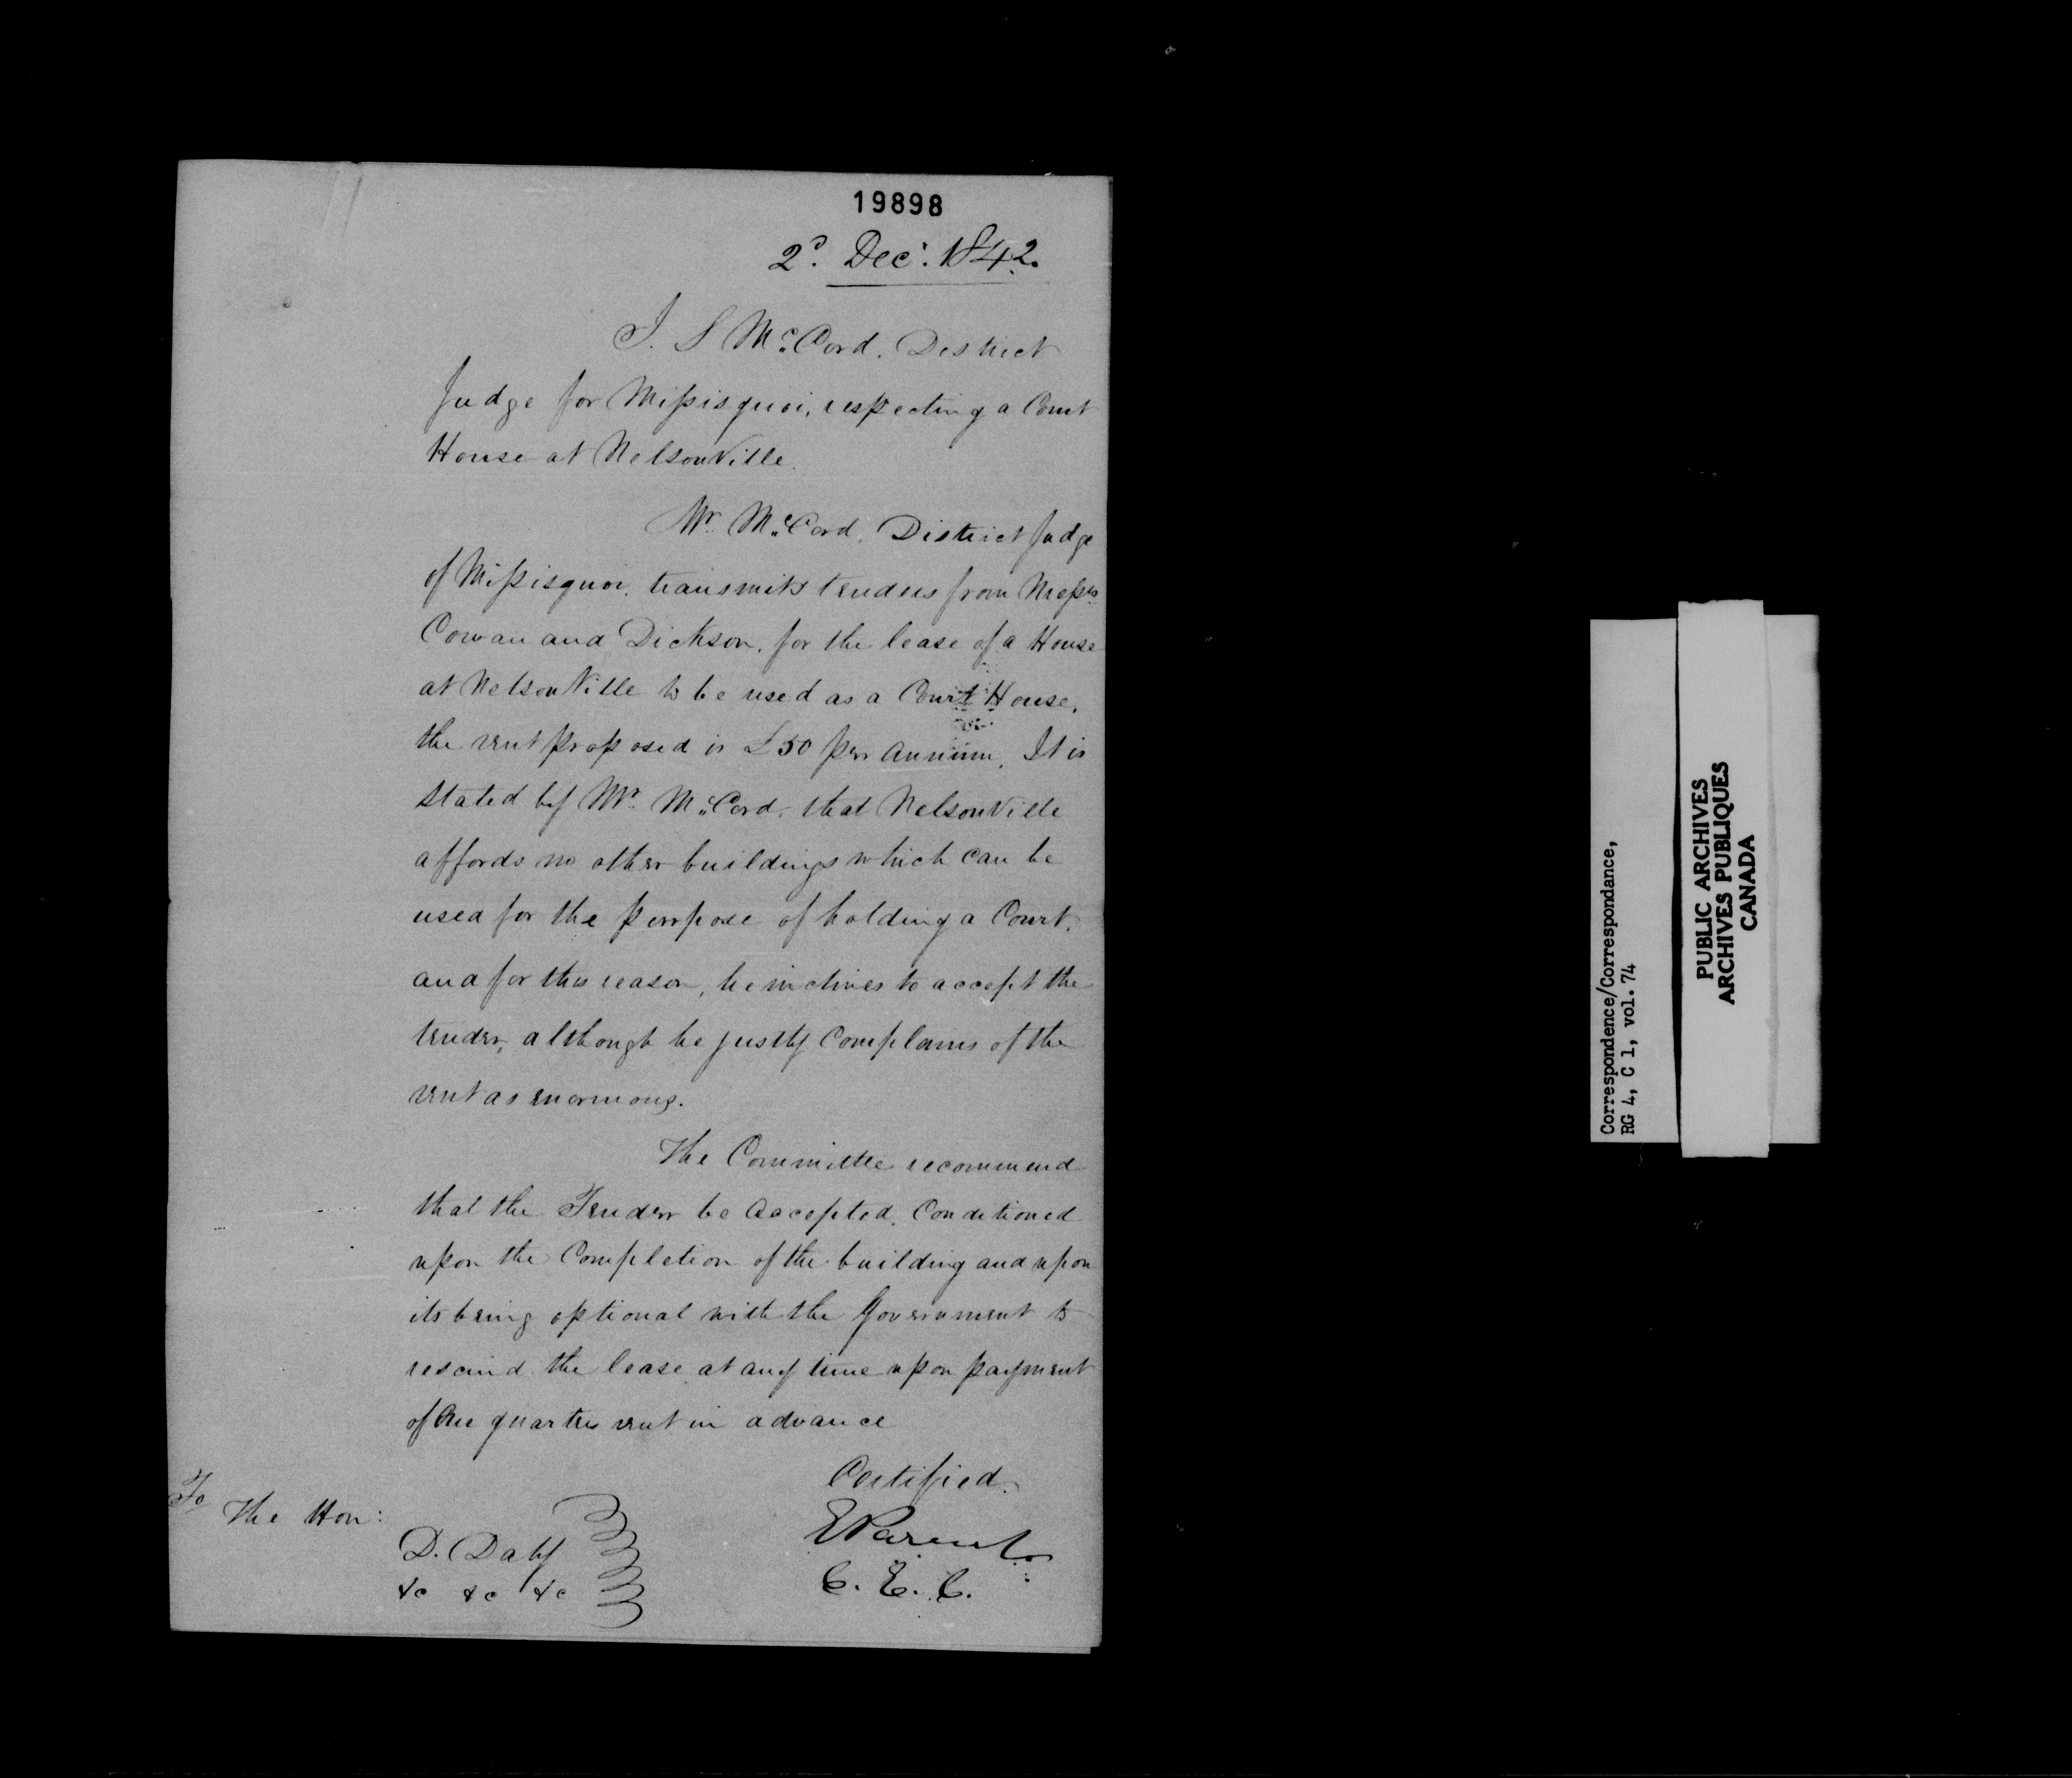 19898
2d. Decr. 1842.
J. S McCord. District
Judge for Missisquoi, respecting a Court
House at NelsonVille.
Mr. McCord, District Judge
of Missisquoi, transmits tenders from Messrs
Cowan and Dickson, for the lease of a House
at NelsonVille to be used as a Court House,
the rent proposed is £50 per annum. It is
stated by Mr. McCord, that NelsonVille
affords no other buildings which can be
used for the purpose of holding a Court,
and for this reason, he inclines to accept the
tender, although he justly Complains of the
rent as enormous.
The Committee recommend
that the Tender be accepted, Conditioned
upon the Completion of the building and upon
its being optional with the Government to
rescind the lease at any time upon payment
of One quarters rent in advance
Certified.
To
The Hon:
D. Daly
&c &c &c
E Parent
C. E. C.
Correspondence/Correspondance,
RG 4, C 1, vol. 74
PUBLIC ARCHIVES
ARCHIVES PUBLIQUES
CANADA